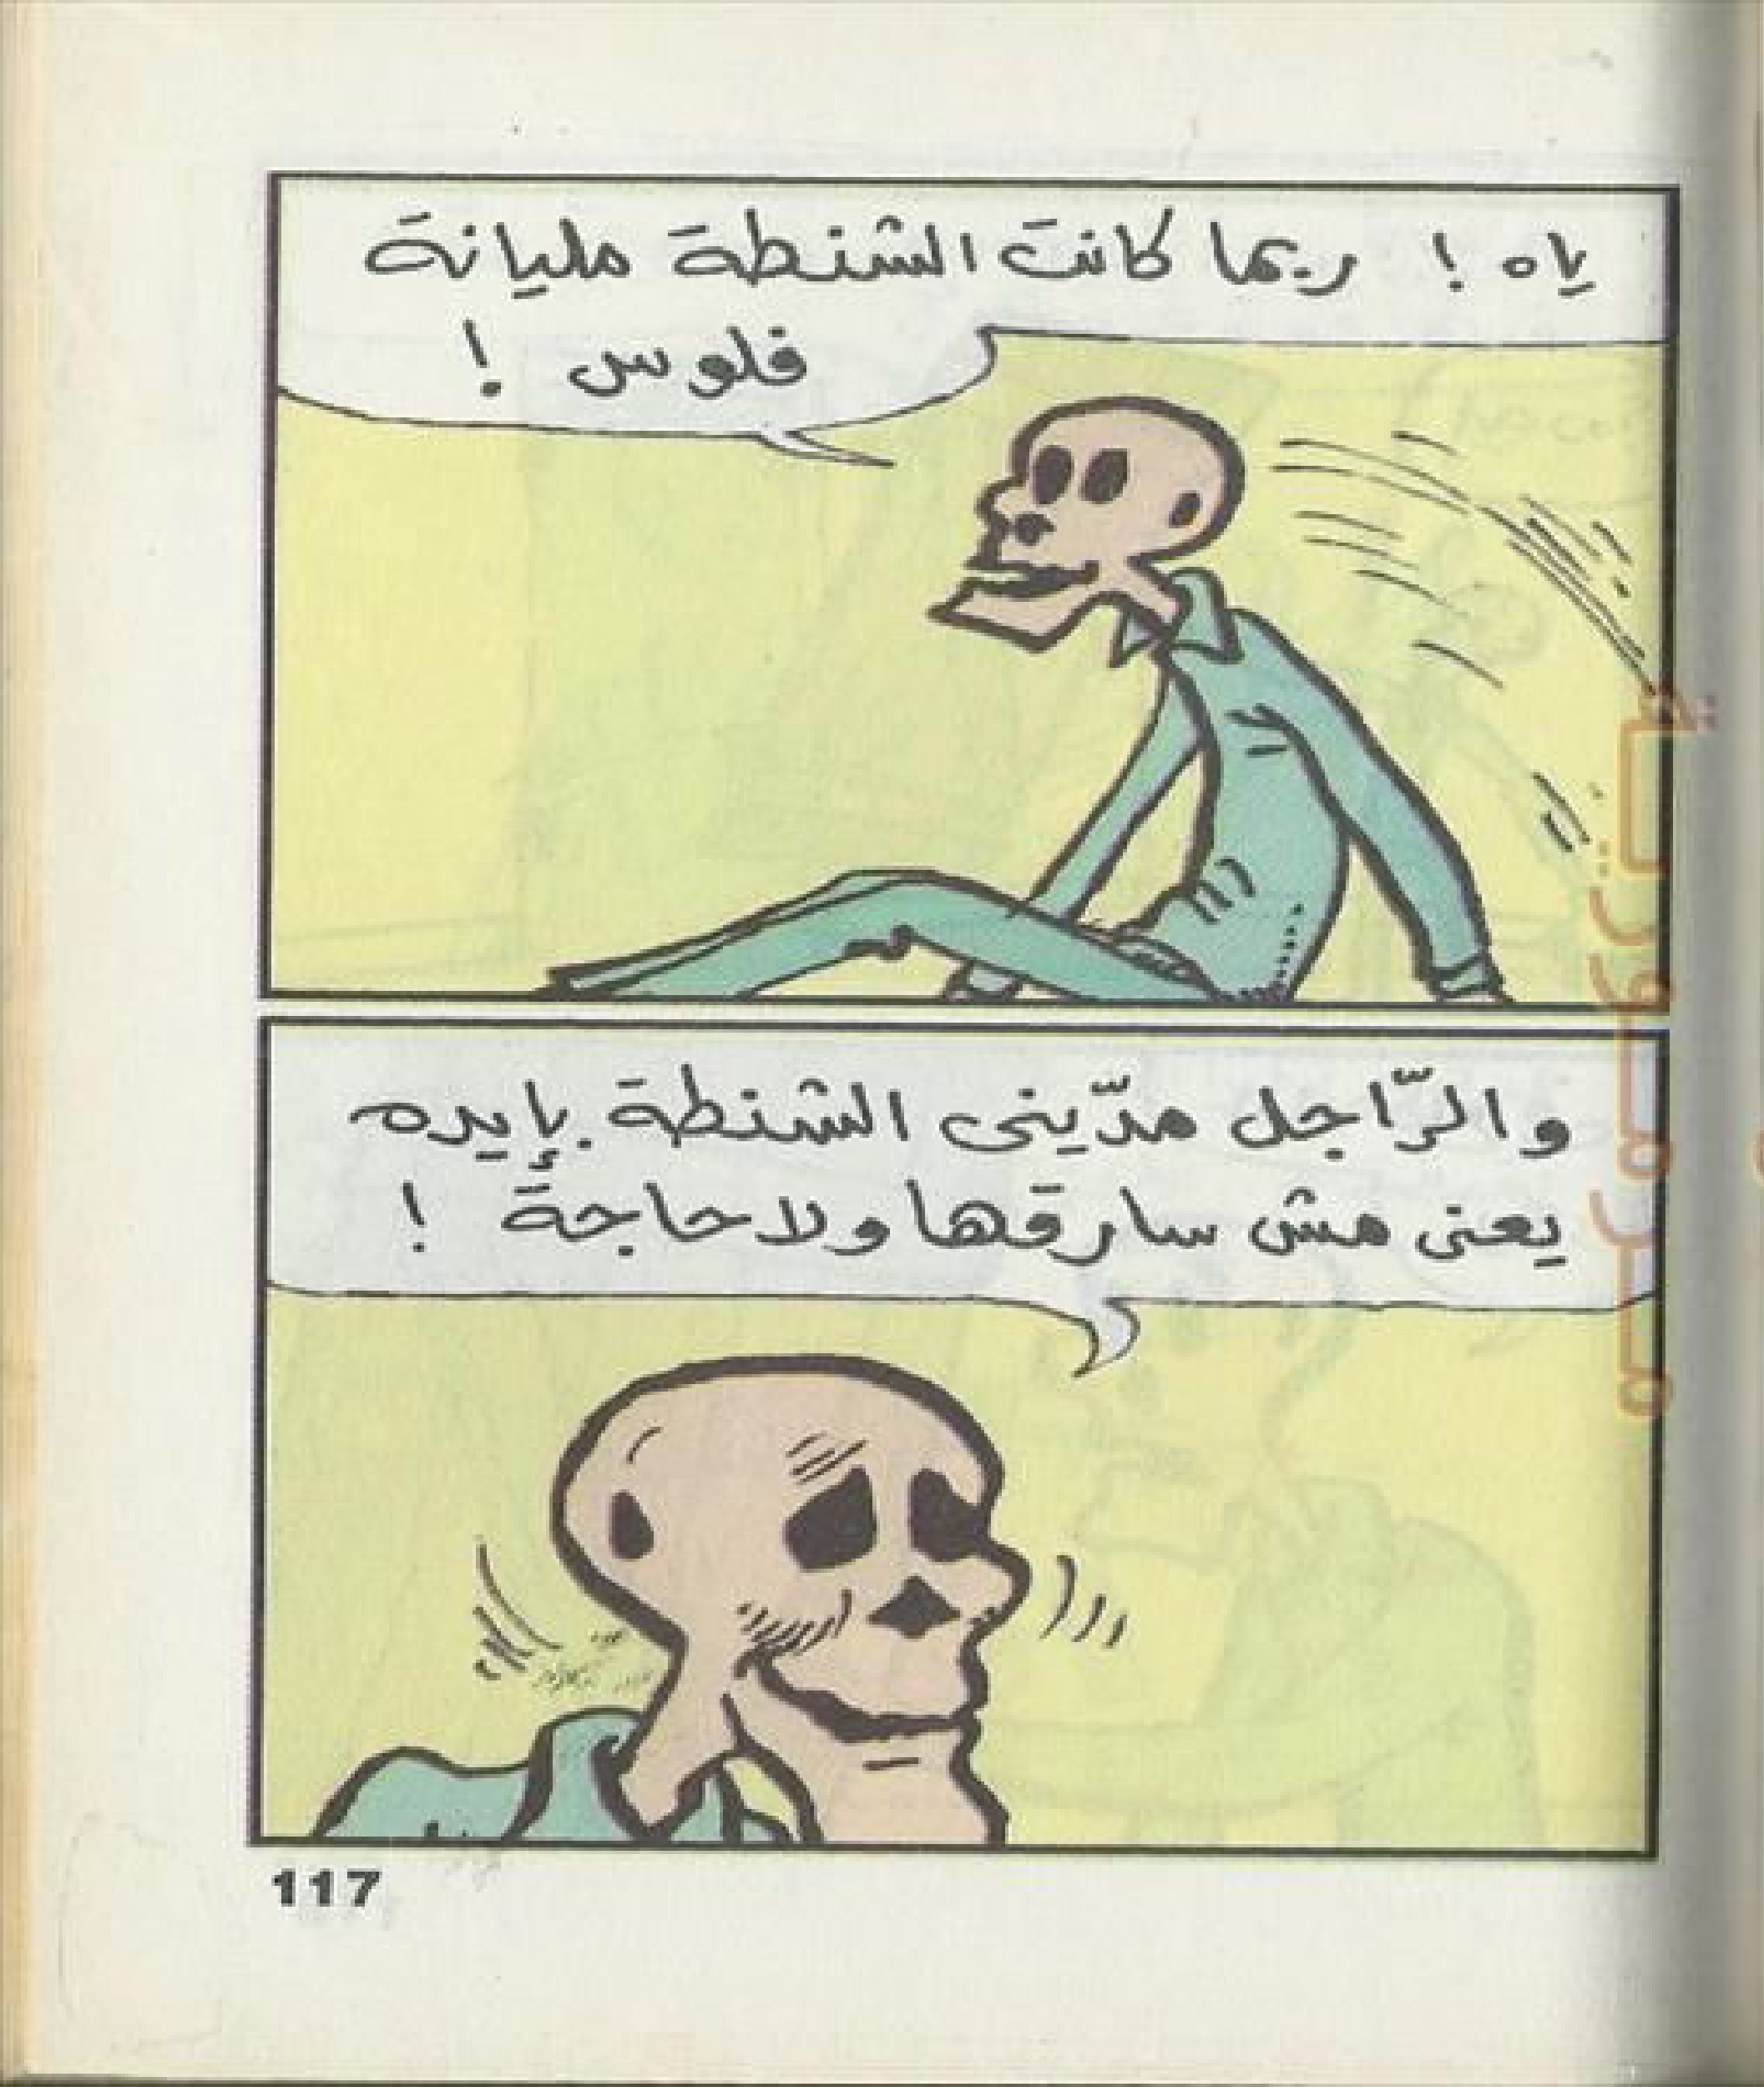 ياه ! ربما كانت الشنطة مليانة
فلوس !
والرّاجل مدّينى الشنطة بإيده
يعنى مش سارقها ولا حاجة !
117